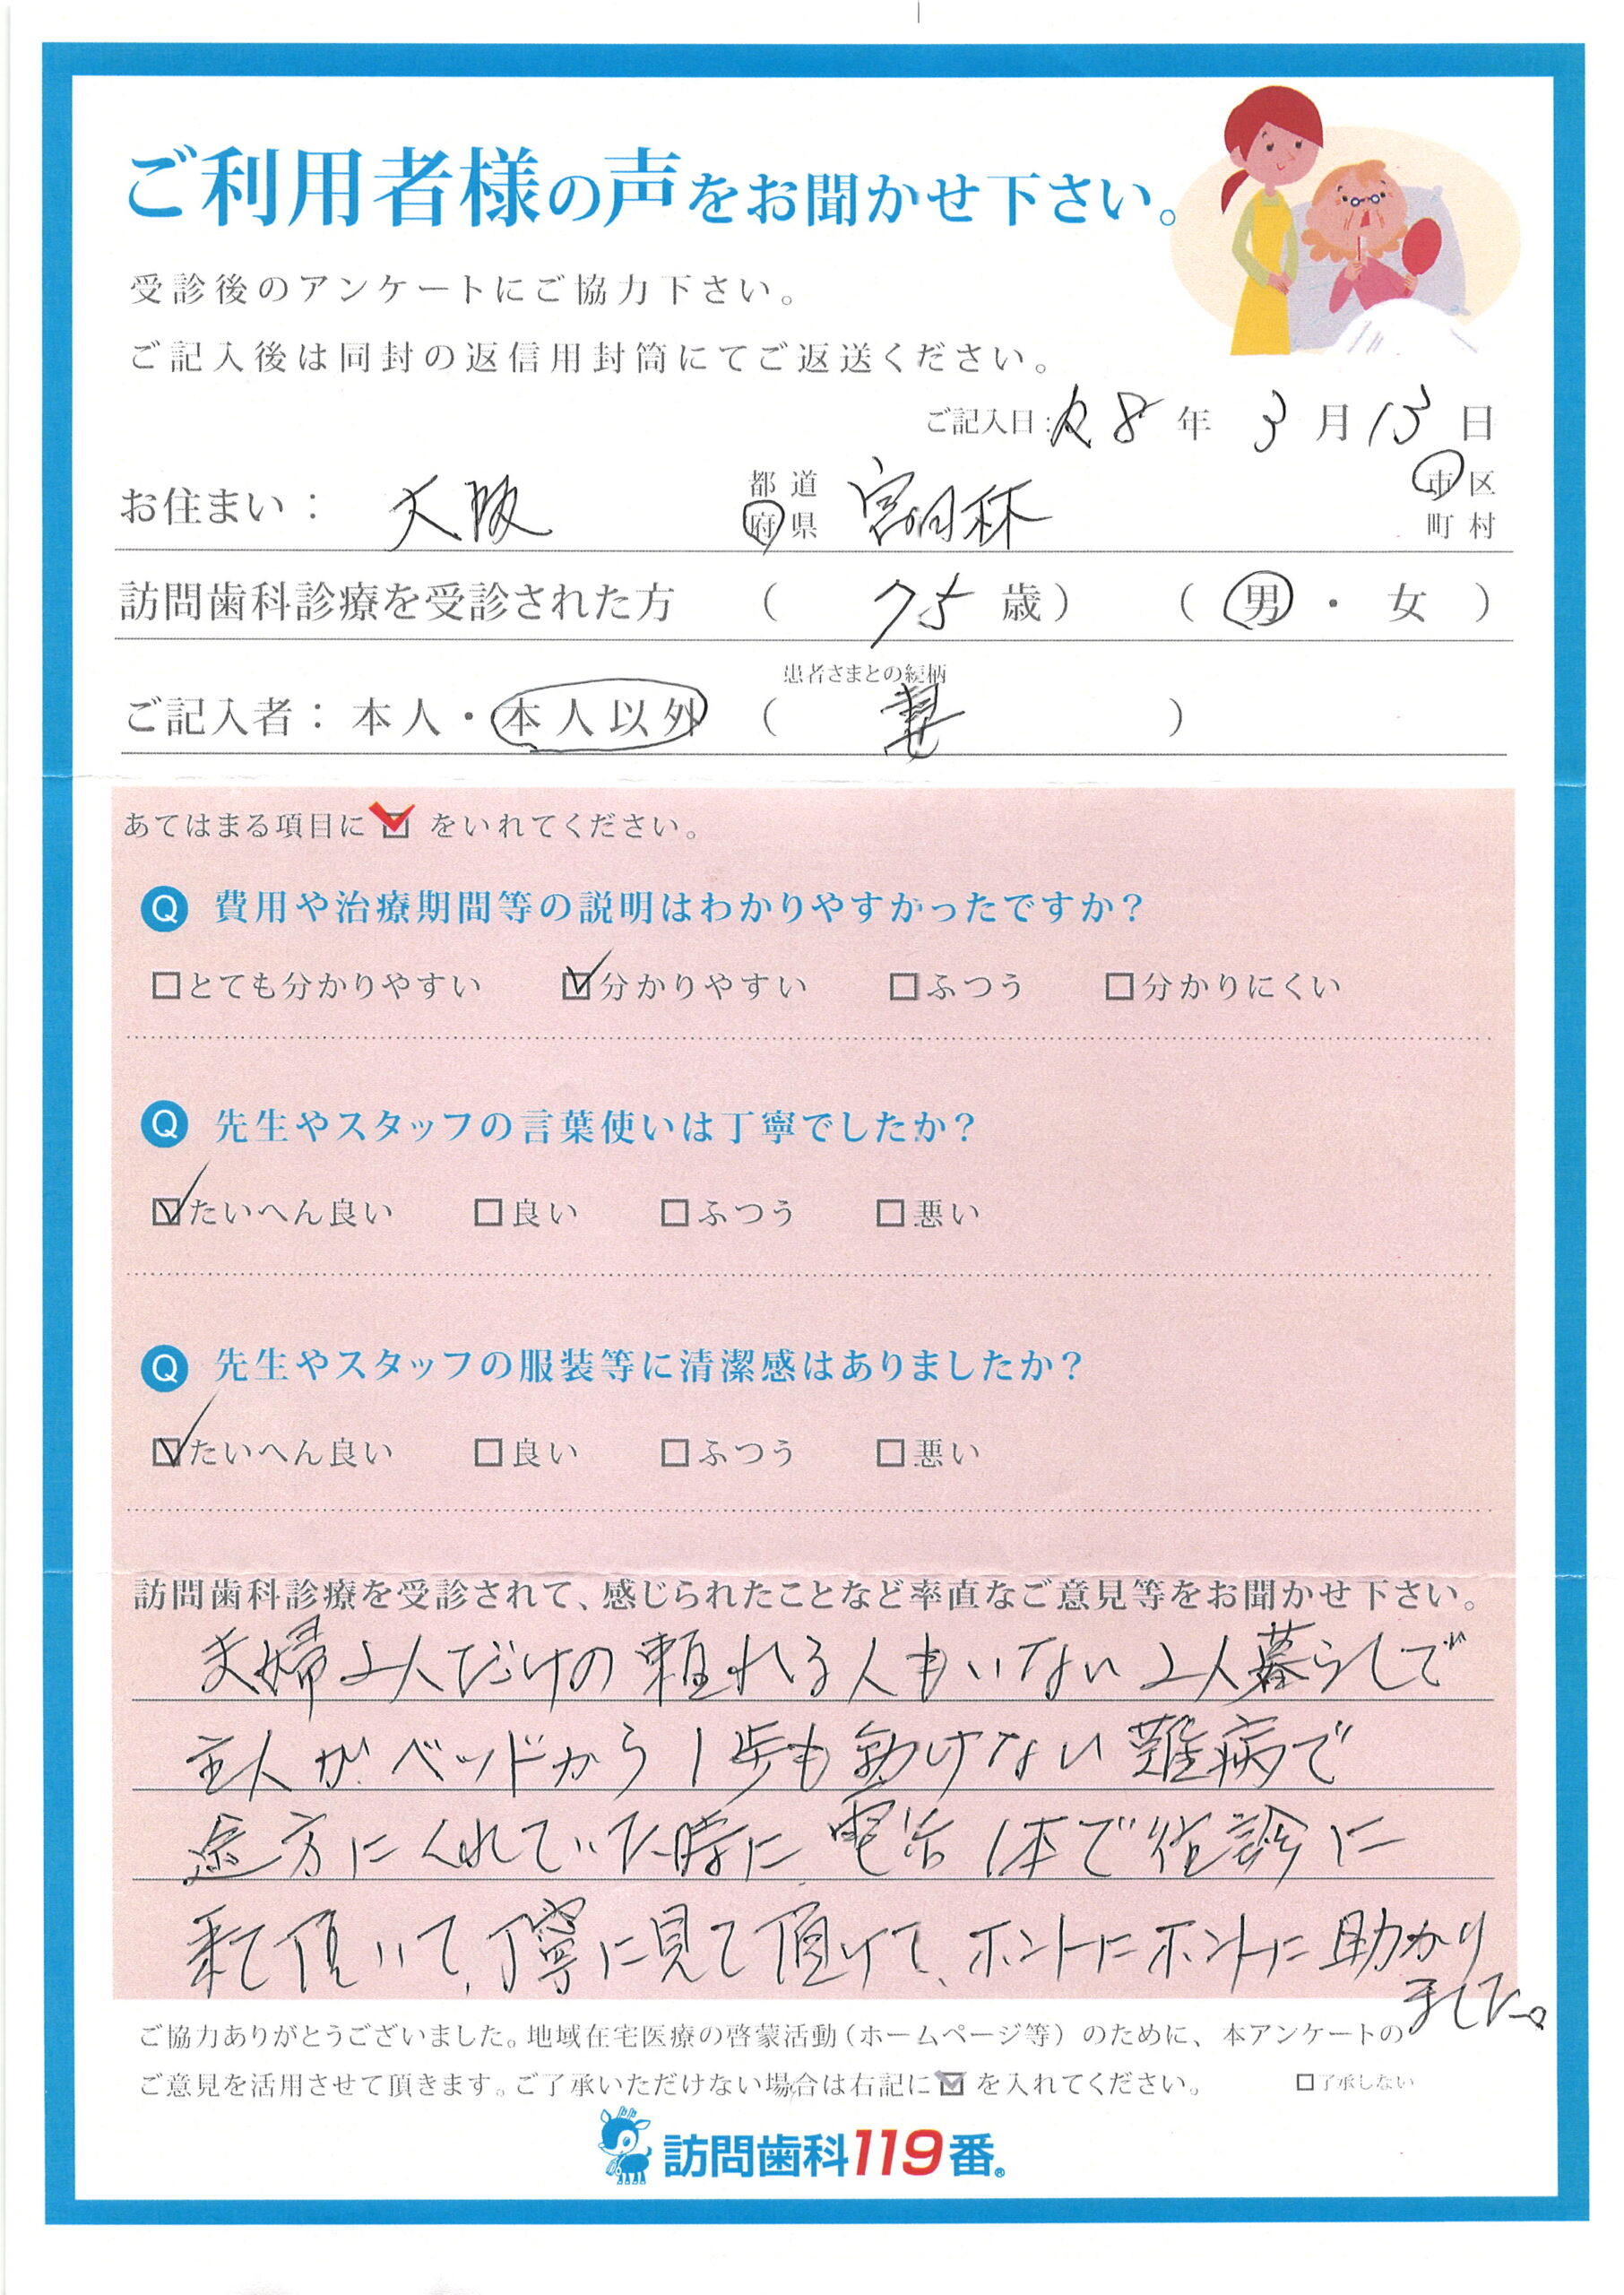 ご利用者様の声をお聞かせ下さい。
受診後のアンケートにご協力下さい。
ご記入後は同封の返信用封筒にてご返送ください。
ご記入日: 8年 3月 13日
お住まい: 大阪 都道府県 富田林 市区町村
訪問歯科診療を受診された方 ( 75歳) (男・女)
患者さまとの続柄
ご記入者: 本人・本人以外 ( 妻 )
あてはまる項目に☑をいれてください。
Q 費用や治療期間等の説明はわかりやすかったですか?
□とても分かりやすい ☑分かりやすい □ふつう □分かりにくい
Q 先生やスタッフの言葉使いは丁寧でしたか?
☑たいへん良い □良い □ふつう □悪い
Q 先生やスタッフの服装等に清潔感はありましたか?
☑たいへん良い □良い □ふつう □悪い
訪問歯科診療を受診されて、感じられたことなど率直なご意見等をお聞かせ下さい。
夫婦2人だけの頼れる人もいない2人暮らしで
主人がベッドから1歩も動けない難病で
途方にくれていた時に、電話1本で往診に
来て頂いて、丁寧に見て頂けて、ホントにホントに助かり
ました。
ご協力ありがとうございました。地域在宅医療の啓蒙活動(ホームページ等)のために、本アンケートの
ご意見を活用させて頂きます。ご了承いただけない場合は右記に☑を入れてください。 □了承しない
訪問歯科119番®